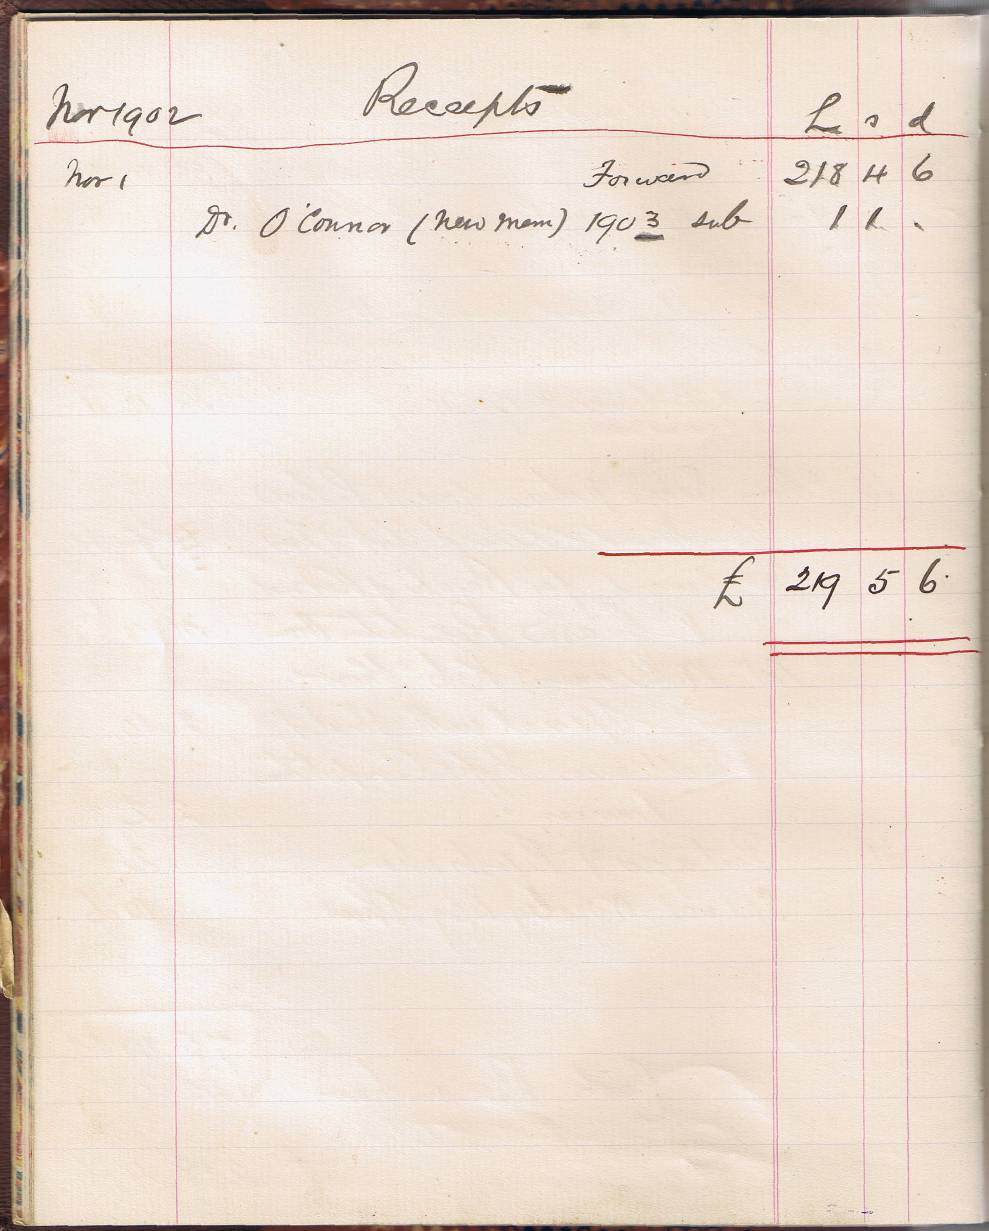 Nov 1902 Receipts £ s d
Nov 1 Forward 218 4 6
Dr. O'Connor (New Mem) 1903 sub 1 1 .
£ 219 5 6